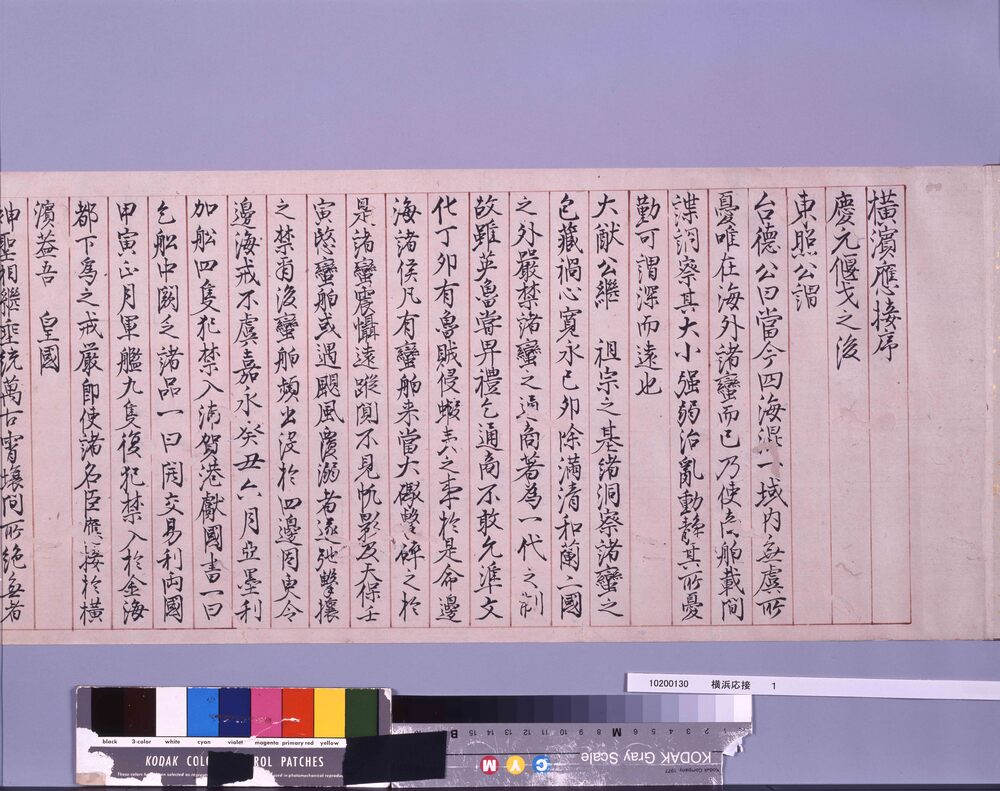 橫濱應接序
慶元偃戈之後
東照公謂
台德公曰當今四海混一域内無虞所
憂唯在海外諸蠻而已乃使商舶載間
諜詗察其大小强弱治亂動靜其所憂
勤可謂深而遠也
大猷公繼 祖宗之基緒洞察諸蠻之
包藏禍心寬永己卯除滿清和蘭二國
之外嚴禁諸蠻之通商著為一代之制
故雖英魯嘗卑禮乞通商不敢允準文
化丁卯有魯賊侵蝦夷之事於是命邊
海諸侯凡有蠻舶来當大礮擊碎之於
是諸蠻震懾遠蹤閴不見帆影及天保壬
寅愍蠻舶或遇颶風覆溺者遂弛擊攘
之禁爾後蠻舶頻出没於四邊因更令
邊海戒不虞嘉永癸丑六月亞墨利
加船四隻犯禁入浦賀港獻國書一曰
乞船中闕之諸品一曰開交易利両國
甲寅正月軍艦九隻復犯禁入於金海
都下為之戒嚴卽使諸名臣應接於橫
濱蓋吾 皇國
神聖相繼垂統萬古霄壤間所絶無者
10200130 横浜応接 1
black 3-color white cyan violet magenta primary red yellow
KODAK COLOR CONTROL PATCHES
KODAK Gray Scale
C Y M
Kodak Company 1977
1 2 3 4 5 6 M 8 9 10 11 12 13 14 15 B